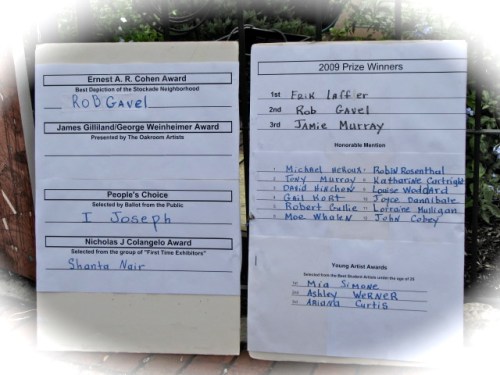 Ernest A. R. Cohen Award
Best Depiction of the Stockade Neighborhood
ROB GAVEL
James Gilliland/George Weinheimer Award
Presented by The Oakroom Artists
People's Choice
Selected by Ballot from the Public
I Joseph
Nicholas J Colangelo Award
Selected from the group of "First Time Exhibitors"
Shanta Nair
2009 Prize Winners
1st Erik Laffer
2nd Rob Gavel
3rd Jamie Murray
Honorable Mention
Michael Heroux Robin Rosenthal
Tony Murray Katharine Cartright
David Hinchen Louise Woddard
Gail Kort Joyce Dannibale
Robert Gullie Lorraine Mulligan
Moe Whalen John Cobey
Young Artist Awards
Selected from the Best Student Artists under the age of
Mia Simone
Ashley Werner
Ariana Curtis